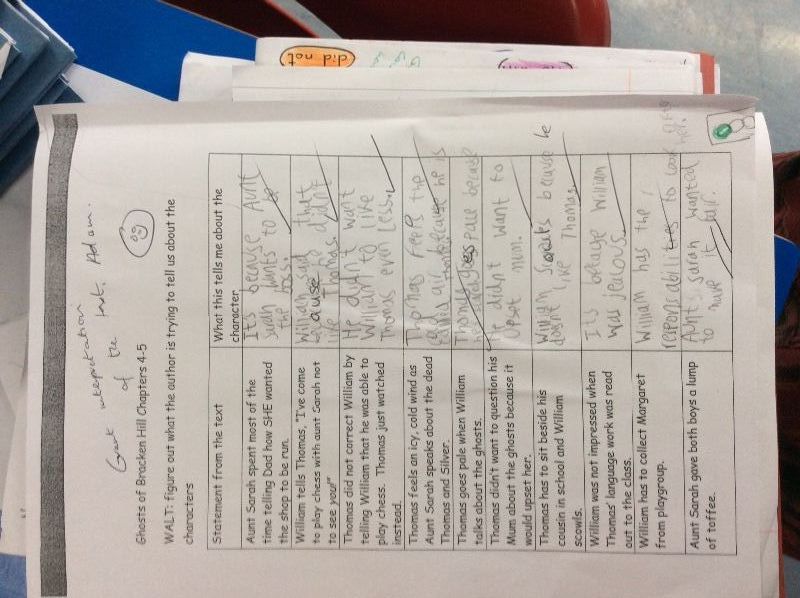 Great interpretation
of the text, Adam.
Ghosts of Bracken Hill Chapters 4-5
WALT: figure out what the author is trying to tell us about the
characters
Statement from the text
What this tells me about the
character
Aunt Sarah spent most of the
time telling Dad how SHE wanted
the shop to be run.
Its because Aunt
Sarah wants to be
the boss.
William tells Thomas, "I've come
to play chess with aunt Sarah not
to see you!"
William said that
because he didn't
like Thomas.
Thomas did not correct William by
telling William that he was able to
play chess. Thomas just watched
instead.
He didn't want
William to like
Thomas even less.
Thomas feels an icy, cold wind as
Aunt Sarah speaks about the dead
Thomas and Silver.
Thomas feels the
cold air because he is
Thomas goes pale when William
talks about the ghosts.
Thomas goes pale because
Thomas didn't want to question his
Mum about the ghosts because it
would upset her.
He didn't want to
upset mum.
Thomas has to sit beside his
cousin in school and William
scowls.
William scowls because he
doesn't like Thomas.
William was not impressed when
Thomas' language work was read
out to the class.
Its because William
was jealous.
William has to collect Margaret
from playgroup.
William has the
responsabilities to look after
her.
Aunt Sarah gave both boys a lump
of toffee.
Aunt Sarah wanted
to have it fair.
did not